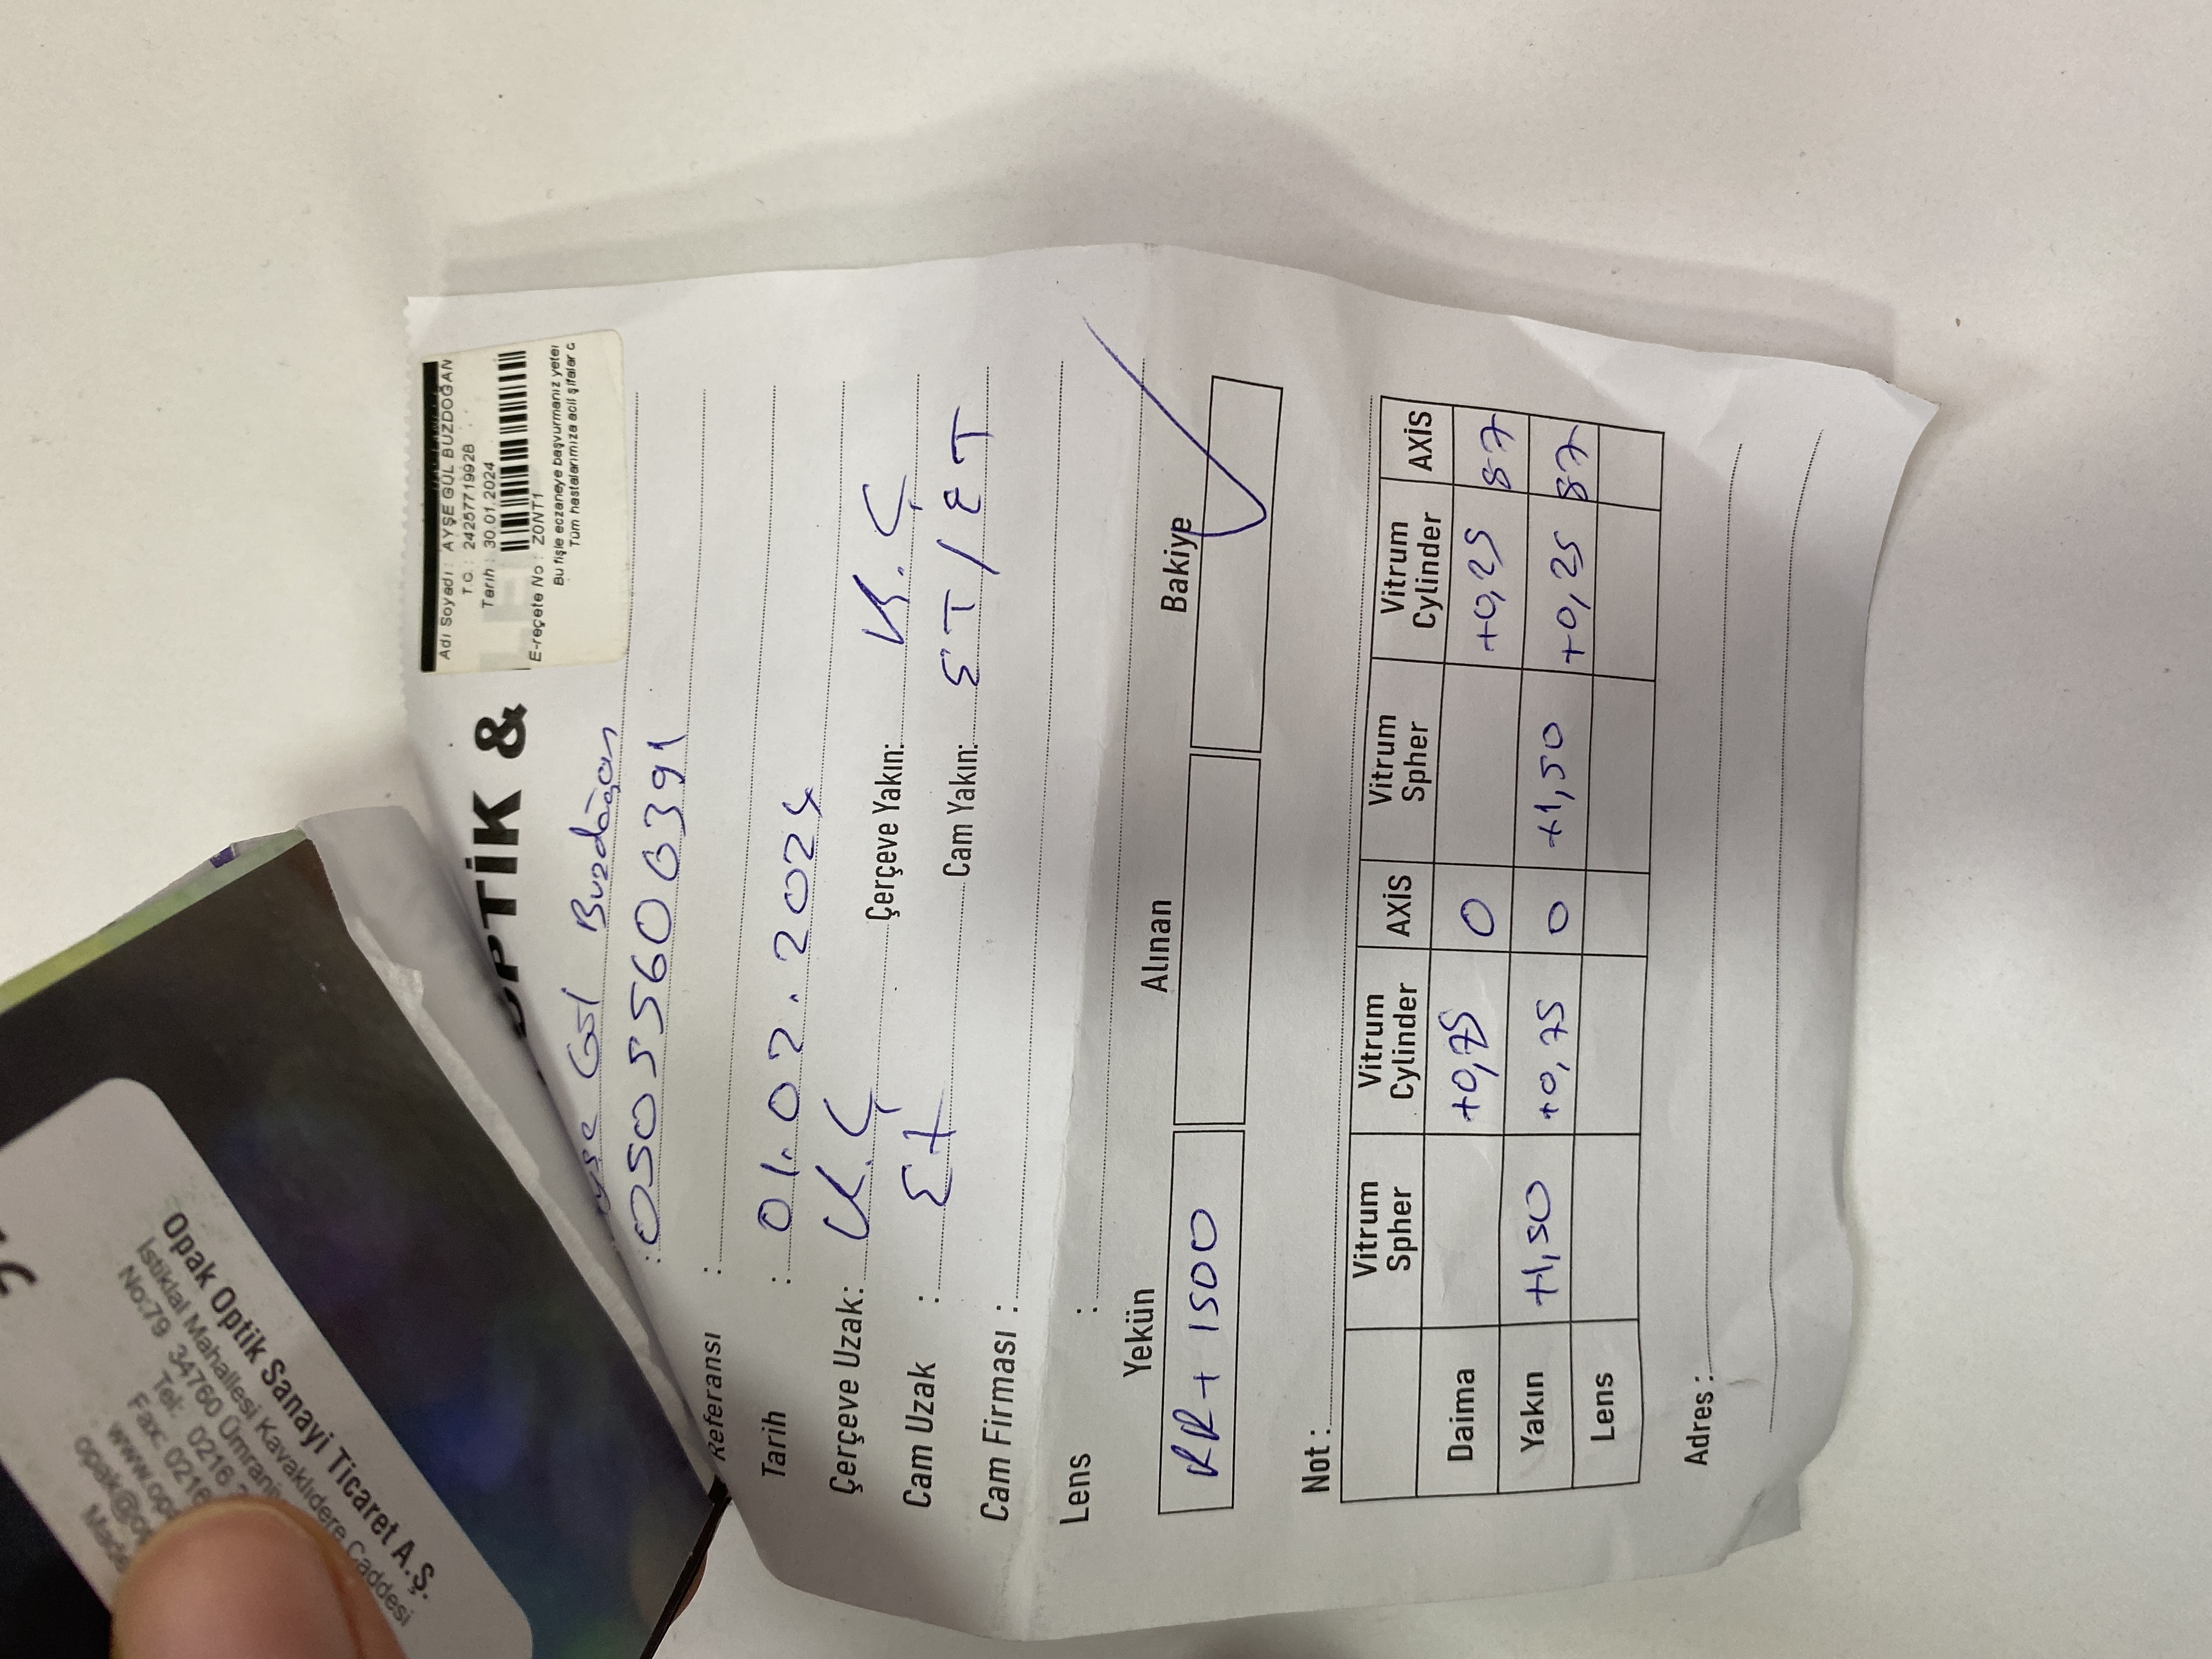 Opak Optik Sanayi Ticaret A.Ş.
İstiklal Mahallesi Kavaklıdere Caddesi
No:79 34760
Tel: 0216
Fax: 0216
OPTİK &
Adı Soyadı : AYŞE GÜL BUZDOĞAN
T.C. : 24257719928
Tarih : 30.01.2024
E-reçete No : Z0NT1
Bu fişle eczaneye başvurmanız yeter
Tüm hastalarımıza acil şifalar
Gül Buzdoğan
: 05055600391
Referansı :
Tarih : 01.02.2024
Çerçeve Uzak: K.Ç Çerçeve Yakın: K.Ç
Cam Uzak : ET Cam Yakın: ET/ET
Cam Firması :
Lens :
Yekün Alınan Bakiye
RR+ 1500
Not :
Vitrum Spher Vitrum Cylinder AXİS Vitrum Spher Vitrum Cylinder AXİS
Daima +0,75 0 +0,25 87
Yakın +1,50 +0,75 0 +1,50 +0,25 87
Lens
Adres :